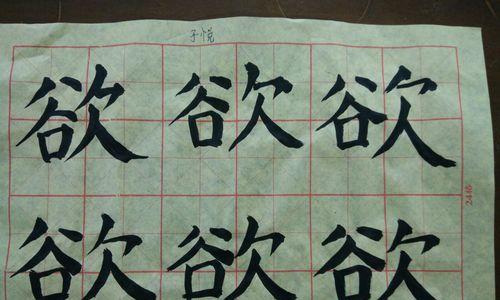 子悦
欲欲欲
欲欲欲
24格